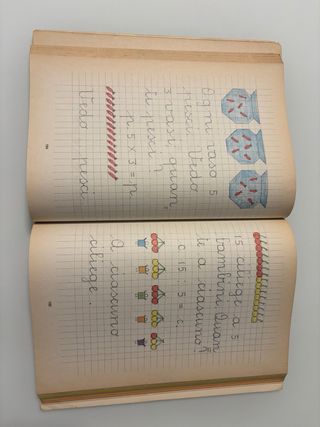 Ogni vaso 5
pesci. Vedo
3 vasi: quan
ti pesci?
p. 5 × 3 = p.
Vedo pesci
15 ciliege a 5
bambini. Quan
te a ciascuno?
c. 15 : 5 = c.
A ciascuno
ciliege.